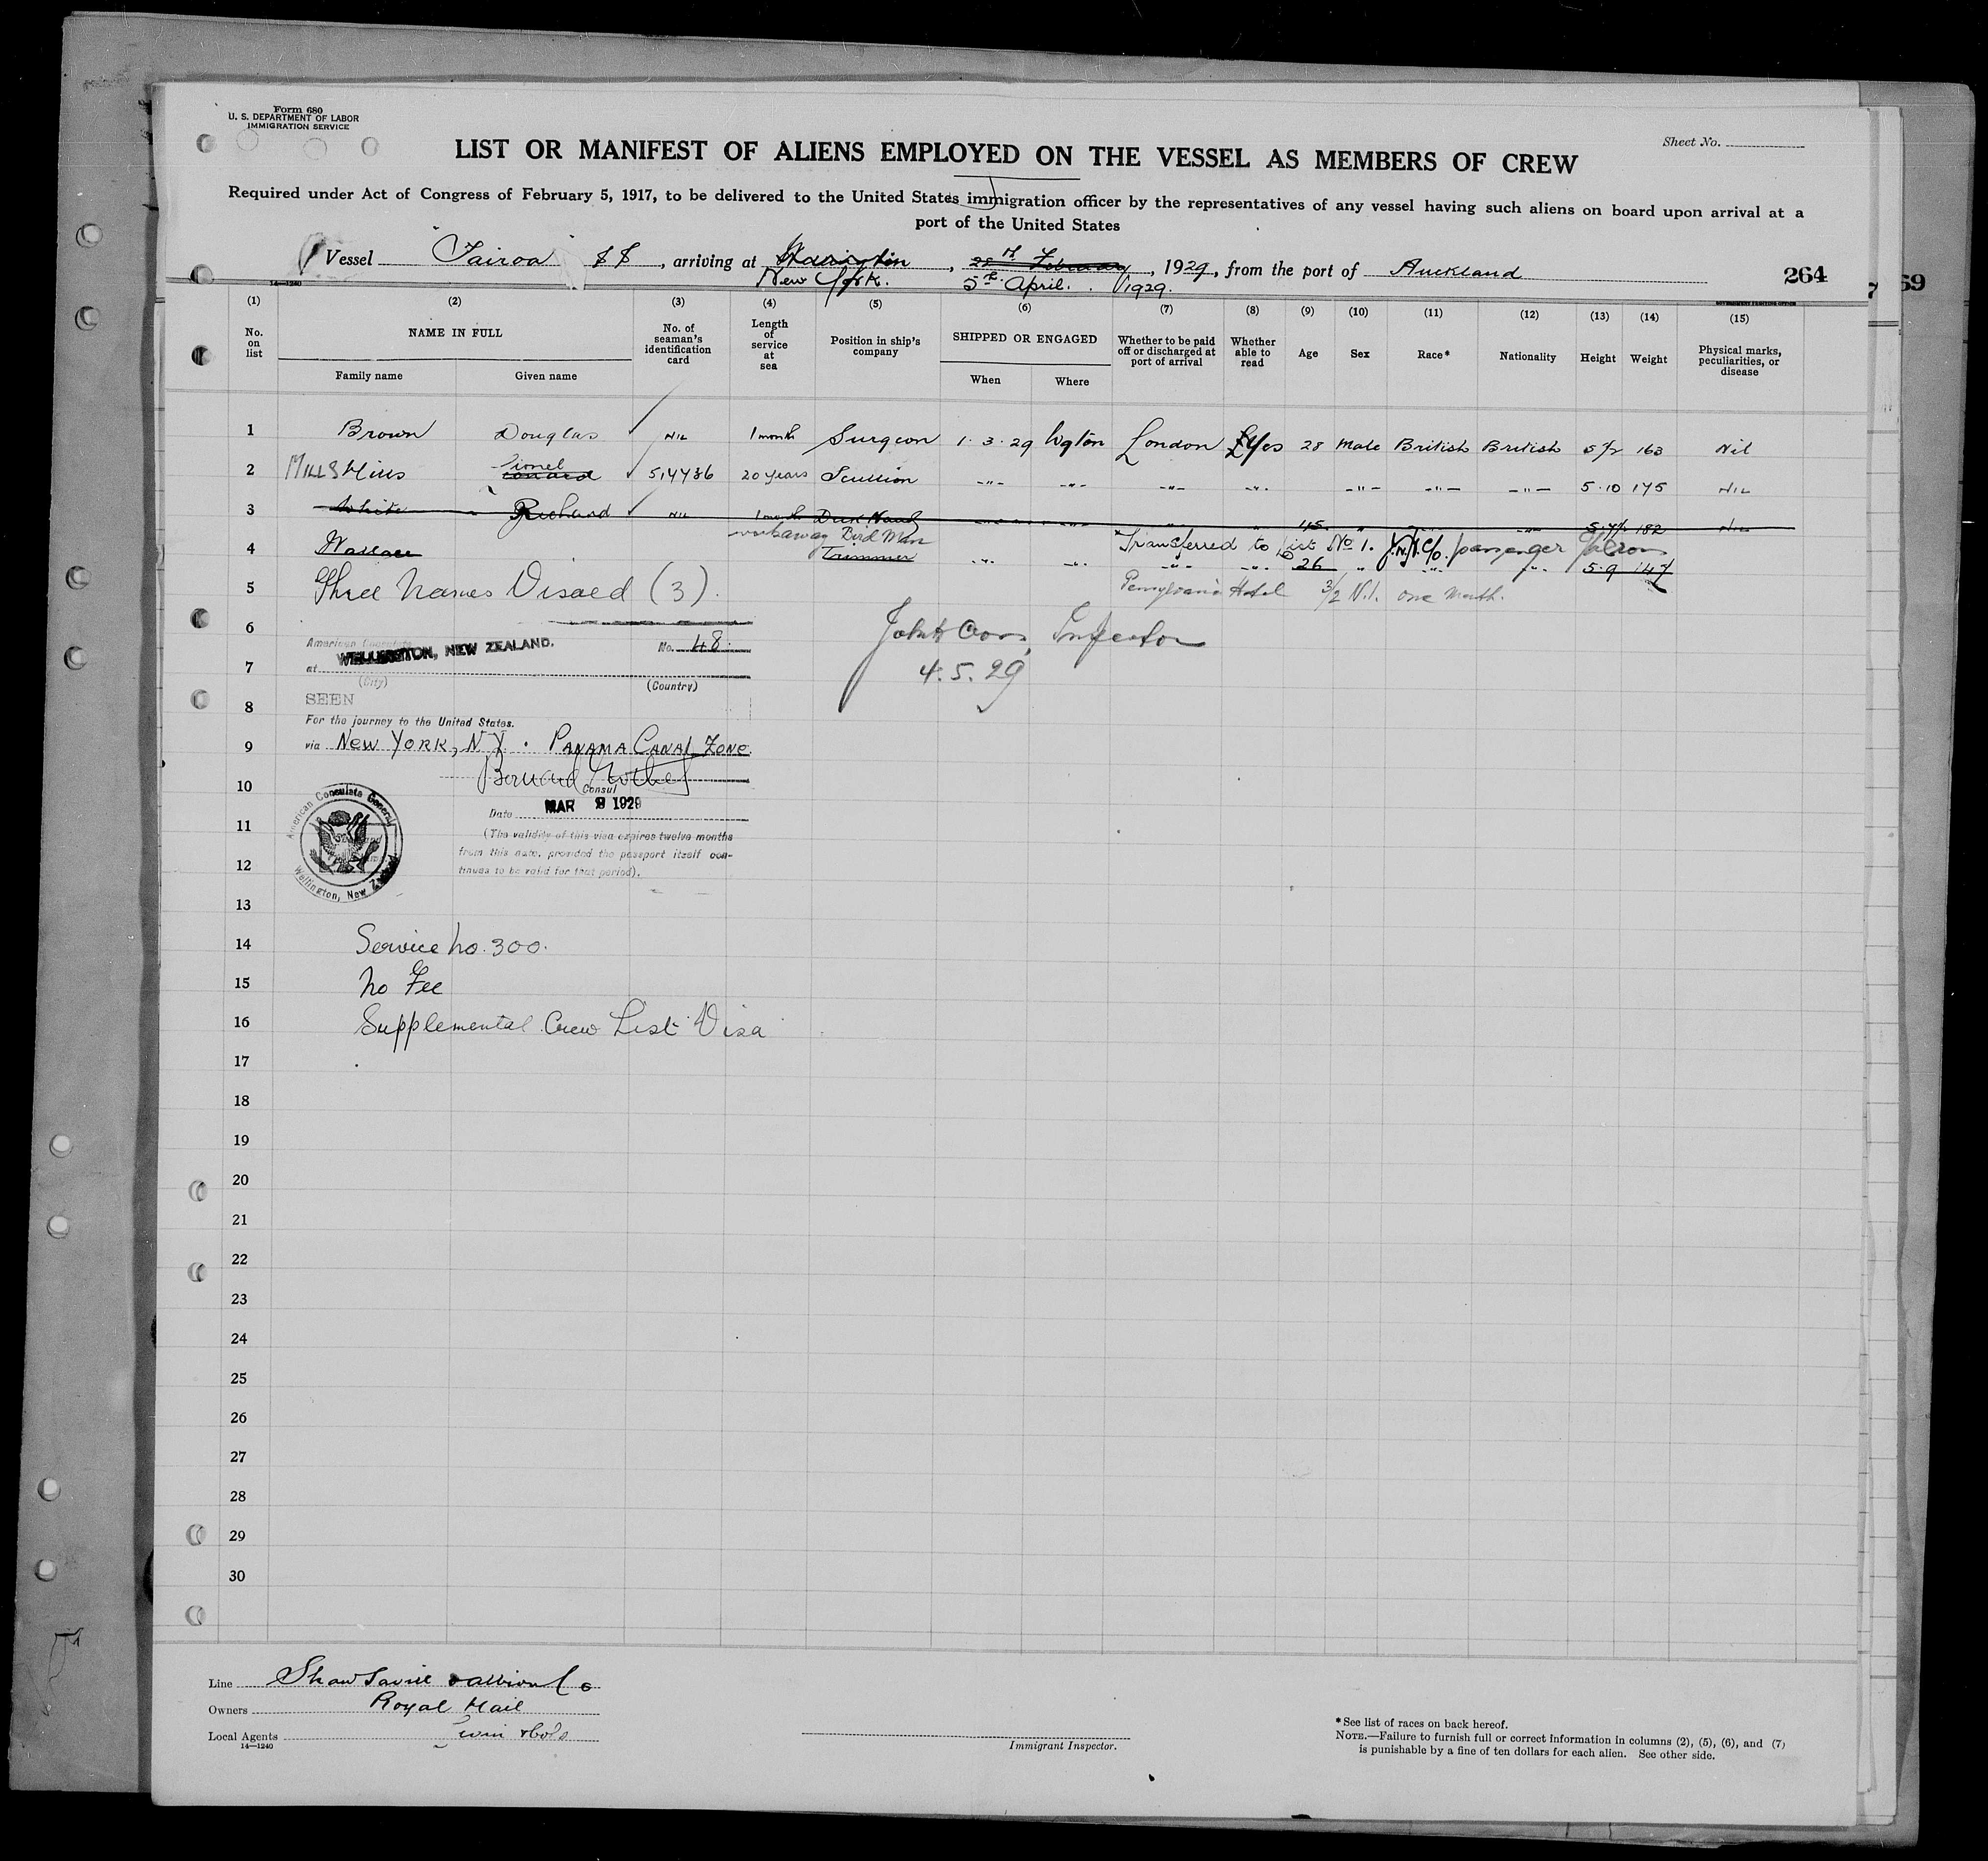 Form 680
U. S. DEPARTMENT OF LABOR
IMMIGRATION SERVICE
Sheet No.
LIST OR MANIFEST OF ALIENS EMPLOYED ON THE VESSEL AS MEMBERS OF CREW
Required under Act of Congress of February 5, 1917, to be delivered to the United States immigration officer by the representatives of any vessel having such aliens on board upon arrival at a
port of the United States
Vessel "Tairoa" SS, arriving at Wellington, 28th February, 1929, from the port of Auckland
New York. 5th April. 1929.
264
59
14—1240
GOVERNMENT PRINTING OFFICE
(1) (2) (3) (4) (5) (6) (7) (8) (9) (10) (11) (12) (13) (14) (15)
No. on list NAME IN FULL No. of seaman's identification card Length of service at sea Position in ship's company SHIPPED OR ENGAGED Whether to be paid off or discharged at port of arrival Whether able to read Age Sex Race* Nationality Height Weight Physical marks, peculiarities, or disease
Family name Given name When Where
1 Brown Douglas Nil 1 month Surgeon 1.3.29 Wgton London Yes 28 Male British British 163 Nil
2 MILLS Mills Lionel 514486 20 years Scullion -"- -"- -"- -"- -"- -"- -"- 5.10 175 Nil
3 White Richard Nil 1 month Deck Hand 45 182 Nil
workaway Bird Man Transferred to List No 1. passenger
4 Wallace Trimmer -"- -"- -"- -"- 26 " -"- -"- 5.9 147
5 Three Names Visaed (3). Hotel N.Y. one month.
6 Inspector
American Consulate
WELLINGTON, NEW ZEALAND. No. 48.
7 at 4.5.29
(City) (Country)
8 SEEN
For the journey to the United States.
9 via NEW YORK, N.Y. PANAMA CANAL ZONE
10 Bernard
Consul
Date MAR 1929
11 (The validity of this visa expires twelve months
from this date, provided the passport itself con-
12 tinues to be valid for that period).
American Consulate General
Wellington, New Zealand
13
14 Service No. 300.
15 No Fee
16 Supplemental Crew List Visa
17
18
19
20
21
22
23
24
25
26
27
28
29
30
Line Shaw Savill & Albion Co
Owners Royal Mail
Local Agents
14—1240
Immigrant Inspector.
*See list of races on back hereof.
NOTE.—Failure to furnish full or correct information in columns (2), (5), (6), and (7)
is punishable by a fine of ten dollars for each alien. See other side.